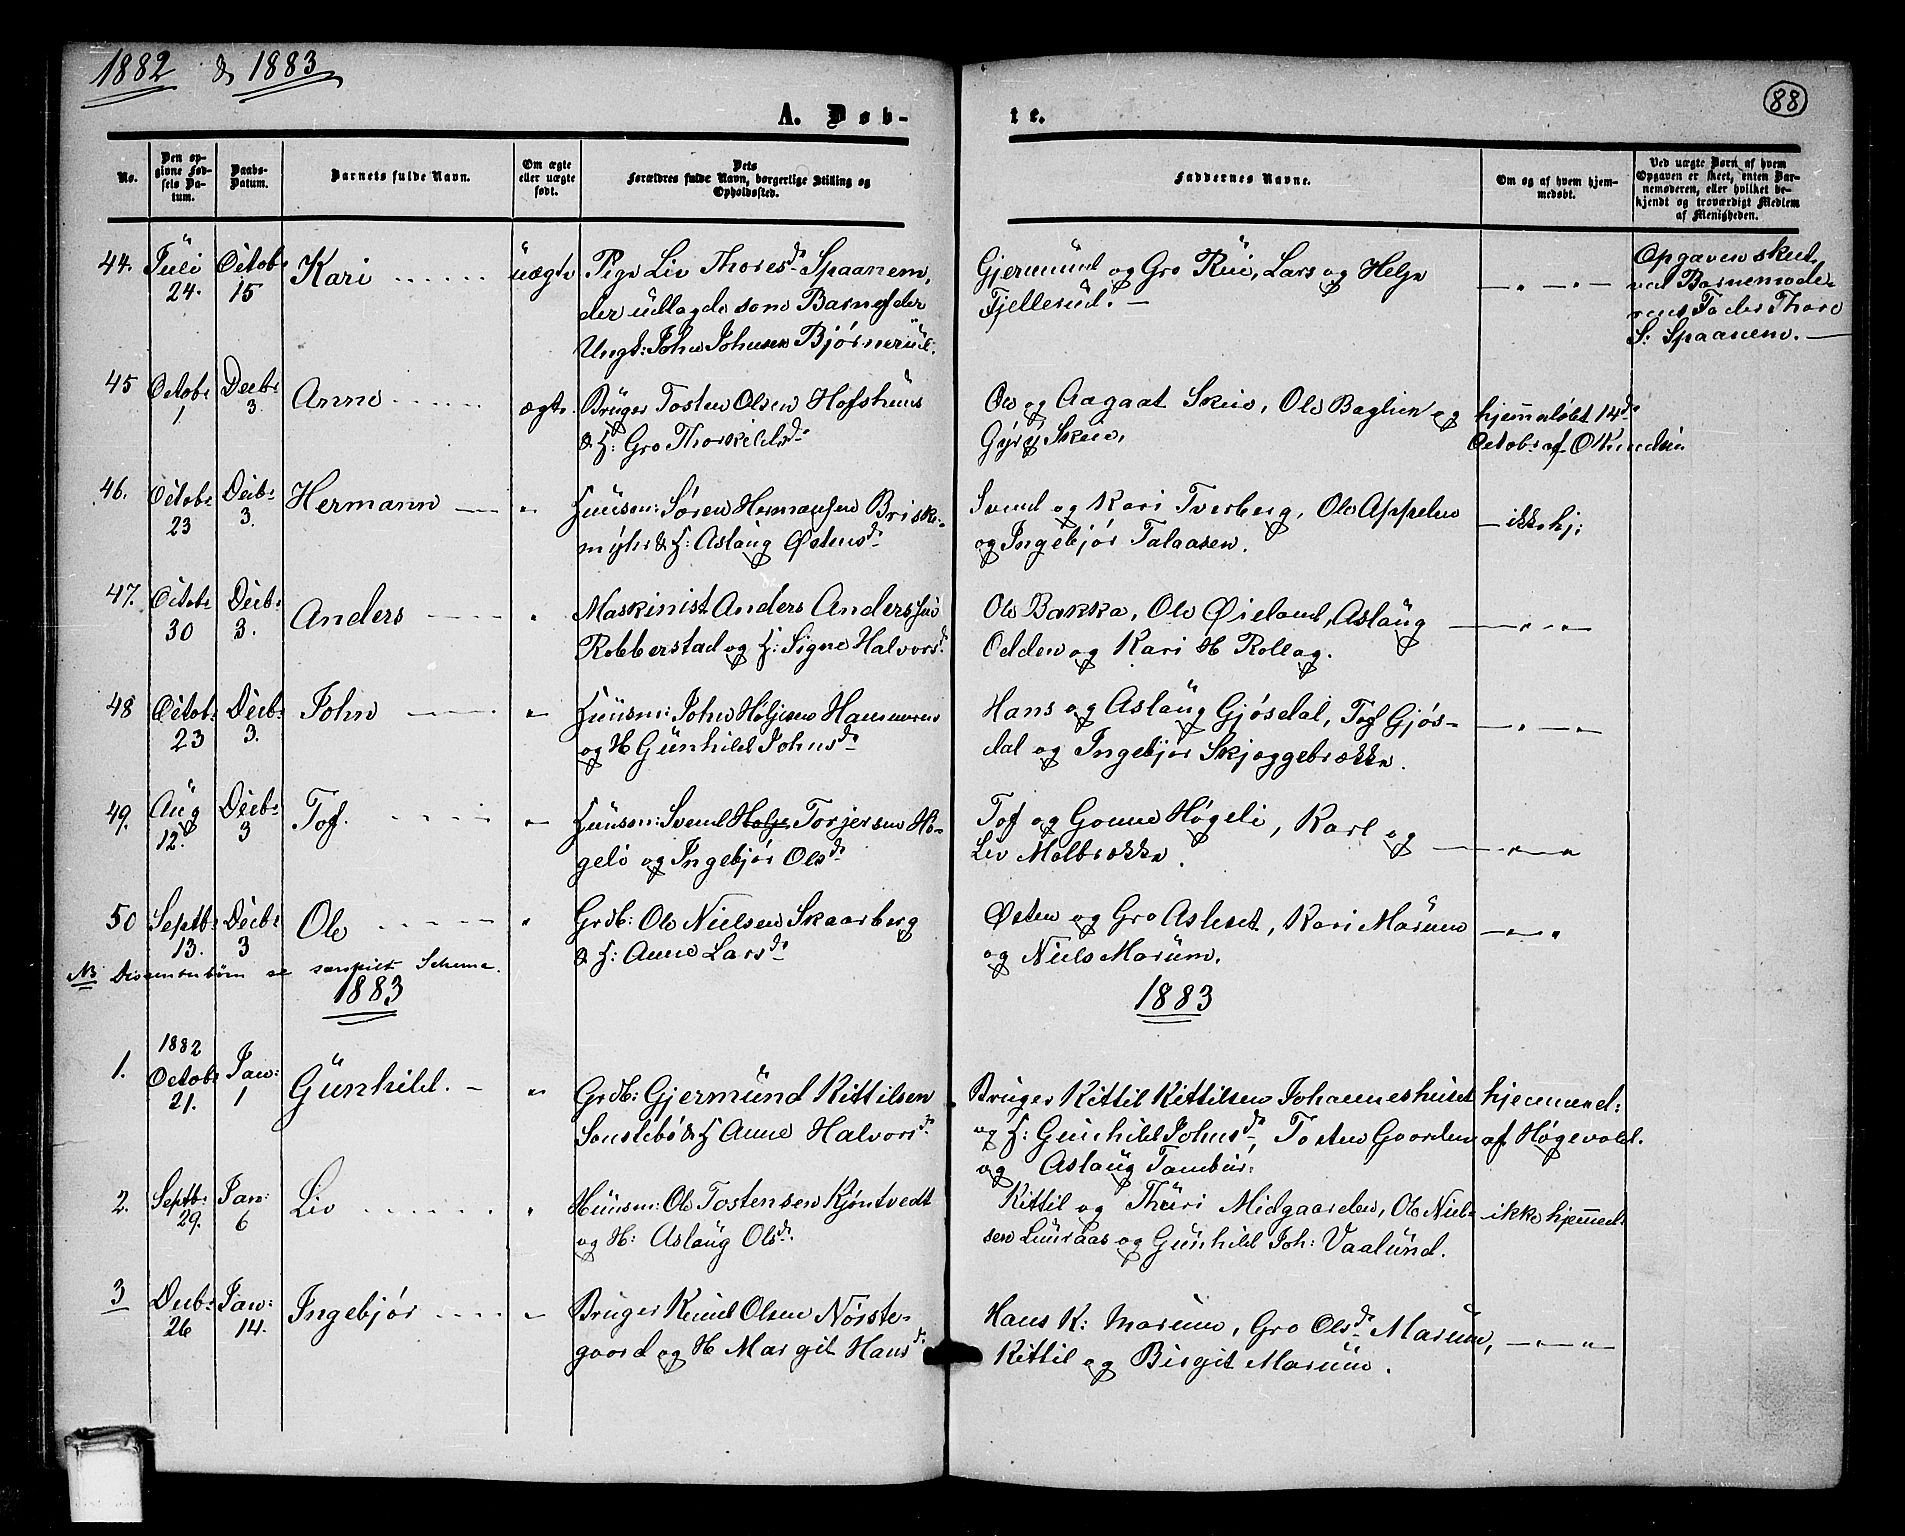 1882 & 1883
88
A. Døb-
te.
No.
Den op-
givne Fød-
sels Da-
tum.
Daabs-
Datum.
Barnets fulde Navn.
Om ægte
eller uægte
født.
Dets
Forældres fulde Navn, borgerlige Stilling og
Opholdssted.
Faddernes Navne.
Om og af hvem hjem-
medøbt.
Ved uægte Børn af hvem
Opgaven er skeet, enten Bar-
nemoderen, eller hvilket be-
kjendt og troværdigt Medlem
af Menigheden.
44. Juli 24. Octob: 15 Kari uægte
Pige Liv Thoresd: Spaanem,
der udlagde som Barnefader
Ungk: John Johnsen Bjørnerud.
Gjermund og Gro Rui, Lars og Helge
Fjellerud. —
— " — " —
Opgaven skeet
ved Barnemode-
rens Fader Thore
S: Spaanem. —
45 Octob: 1 Decb: 3. Anne ægte.
Brüger Tosten Olsen Hofshuus
& H: Gro Thorkildsd:
Ole og Aagaat Skeie, Ole Baglien og
Gyrej Skeie,
hjemmedøbt 14de
Octob: af O Knudsen
46. Octob: 23 Decb: 3. Hermann — "
Huusm: Søren Hermansen Briske-
myhr & H: Aslaug Østensd:
Svend og Kari Tverberg, Ole Appelen
og Ingebjør Talaasen.
— ikke hj:
47. Octob: 30 Decb: 3. Anders "
Maskinist Anders Andersen
Robberstad og H: Signe Halvorsd:
Ole Bakka, Ole Øieland, Aslaug
Odden og Kari H Rollag.
— " — " —
48 Octob: 23 Decb: 3. John "
Huusm: John Høljesen Hammeren
og H Gunhild Johnsd:
Hans og Aslaug Gjøsdal, Tof Gjøs-
dal og Ingebjør Skjeggebrække.
— " — " —
49. Aug 12. Decb: 3 Tof. "
Huusm: Svend Helge Torjersen Hø-
geli og Ingebjør Olsd:
Tof og Gonne Høgeli, Karl og
Liv Molbrække.
— " — " —
50 Septb: 13. Decb: 3 Ole "
Grdb: Ole Nielsen Skaarberg
& H: Anne Larsd:
Østen og Gro Asleset, Kari Marum
og Niels Marum.
— " — "
NB Dissenterbørn se særskilt Schema.
1883
1883
1. 1882 Octob: 21. Jan: 1 Gunhild. — "
Grdb: Gjermund Kittilsen
Sonstebø & H Anne Halvorsd:
Brüger Kittil Kittilsen Johanneshuset
og H: Gunhild Johnsd:, Tosten Gaarden
og Aslaug Tambur.
hjemmed:
af Høgevold.
2. Septb: 29. Jan: 6 Liv "
Huusm: Ole Tostensen Kjøntvedt
og H: Aslaug Olsd:
Kittil og Thuri Midgaarden, Ole Niel-
sen Luuraas og Gunhild Joh: Vaalund.
— ikke hjemmed:
3 Decb: 26 Jan: 14. Ingebjør "
Brüger Knud Olsen Nørste-
gaard og H Margit Hansd:
Hans K: Marum, Gro Olsd: Marum,
Kittil og Birgit Marum.
— " — " —